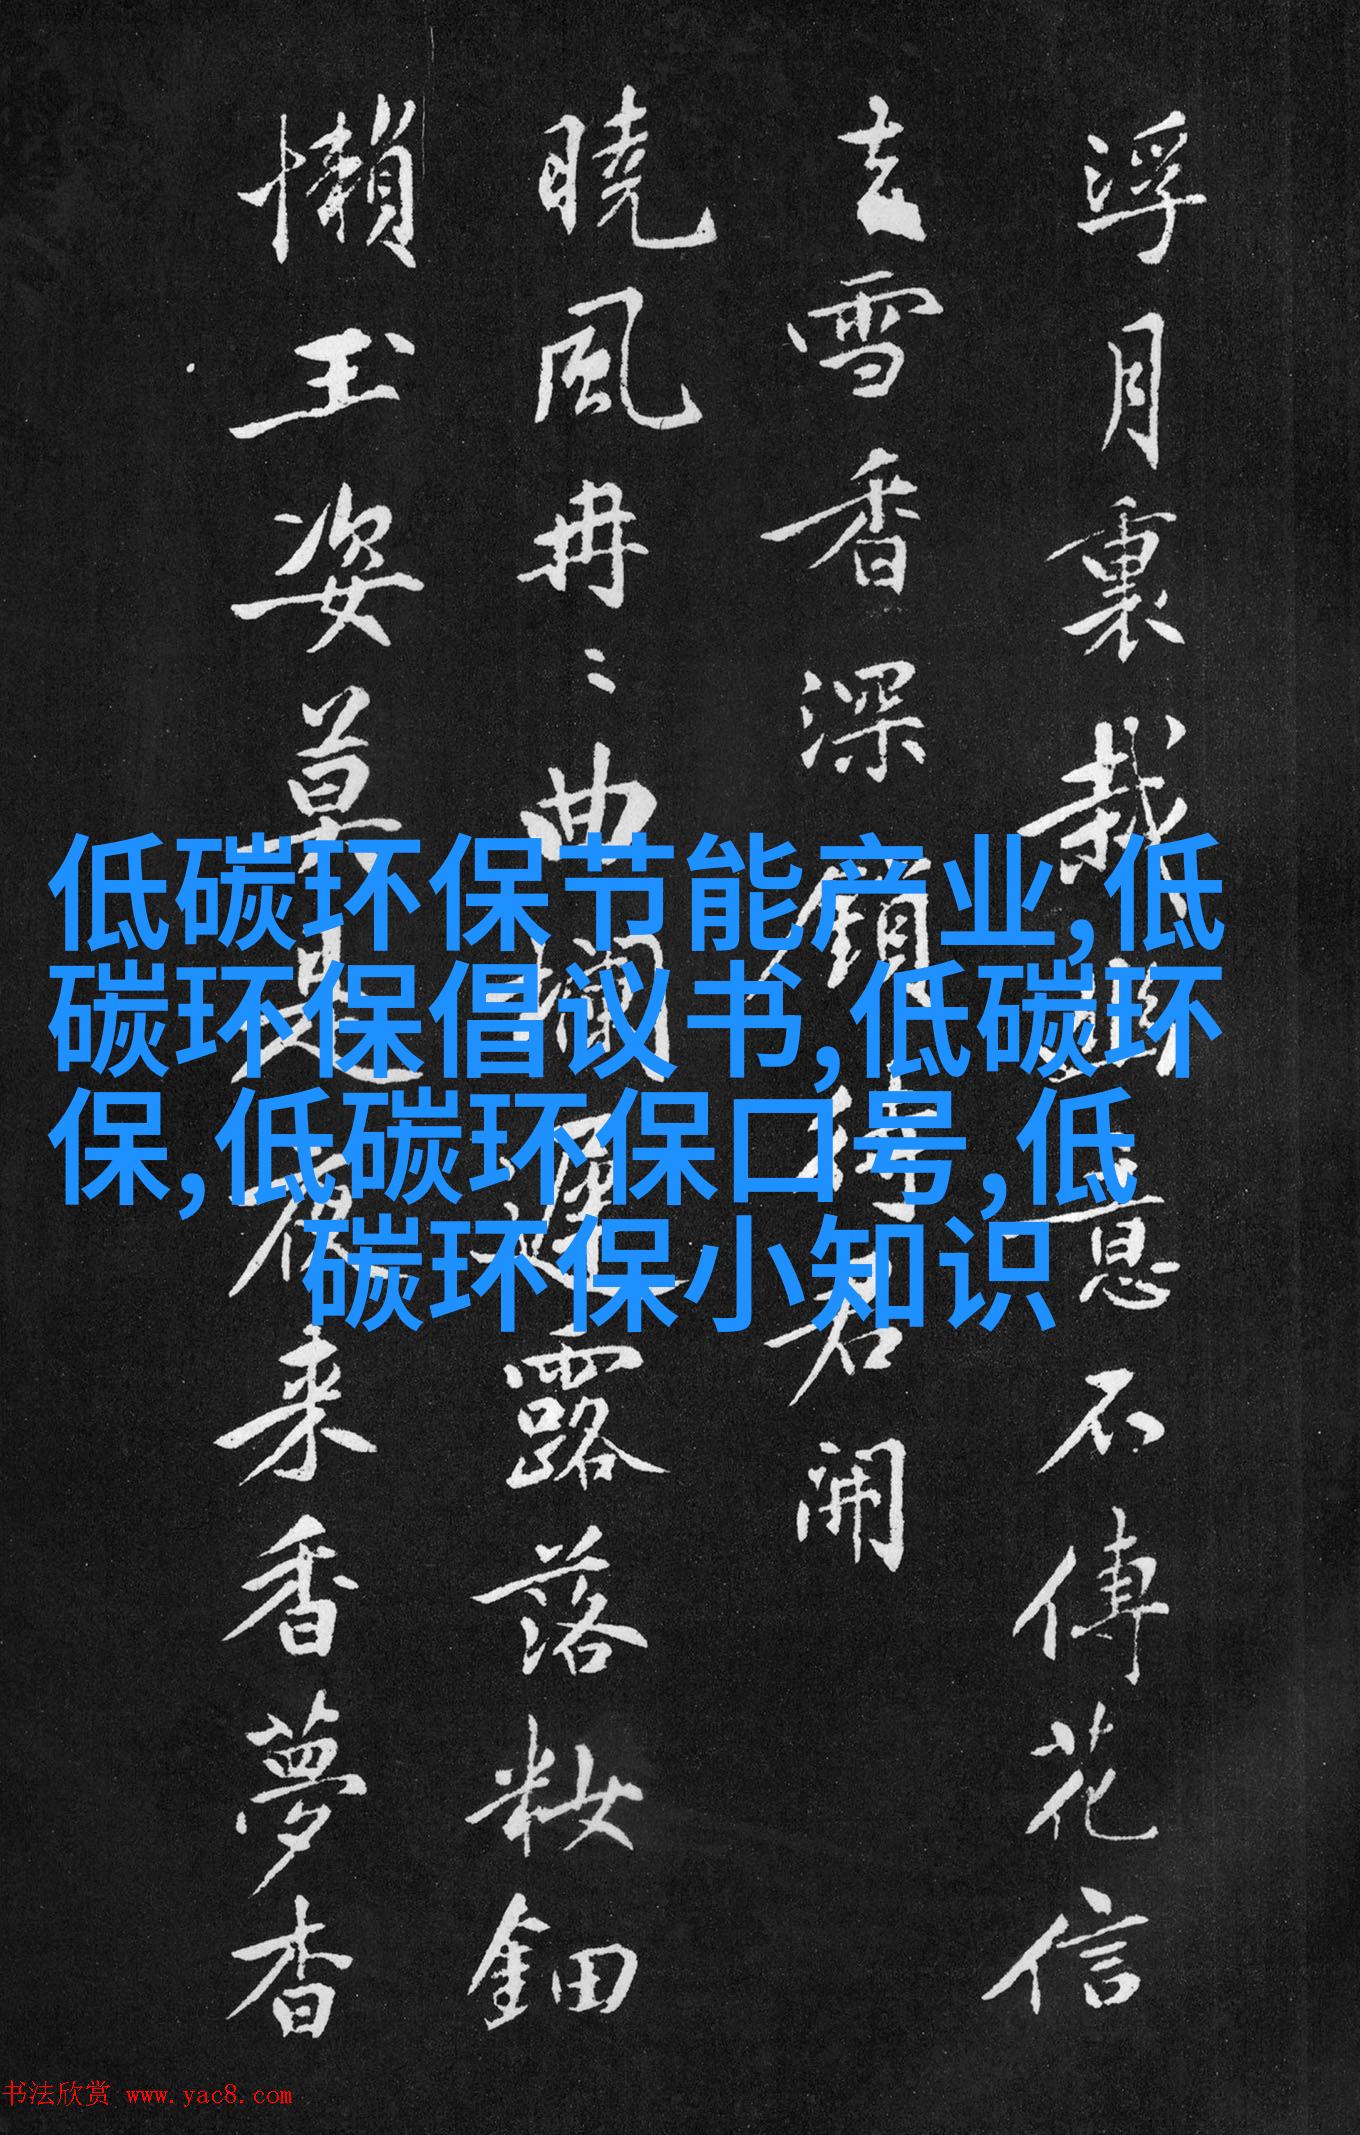 浮月裏栽
意不傳花信
玄雪香深鎖
君開
曉風冉〻曲欄
遲露落妝鈿
懶玉姿莫是
來香夢杳
低碳环保节能产业,低
碳环保倡议书,低碳环
保,低碳环保口号,低
碳环保小知识
书法欣赏 www.yac8.com